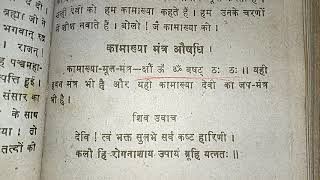 ब्रह्मा जो ने
भगवान् रुद्र
राजन्
पञ्चमहा-
संसार का
के साथ
हैं । जो
तत्वों की
देवी को हम कामाख्या कहते हैं । हम उनके चरणों
में शीश नवाते हैं । बोलो ! जै कामाख्या को ।
कामाख्या मंत्र औषधि ।
कामाख्या-मूल-मन्त्र-क्षौं ऊँ ॐ वषट् ठः ठः ।। यही
मूल मंत्र भी है और यही कामाख्या देवी का जप-मंत्र
भी है ।
शिव उवाच
देवि ! त्वं भक्त सुलभे सर्व कष्ट हारिणी ।
कलौ हि रोगनाशाय उपायं ब्रूहि यत्नतः ।।